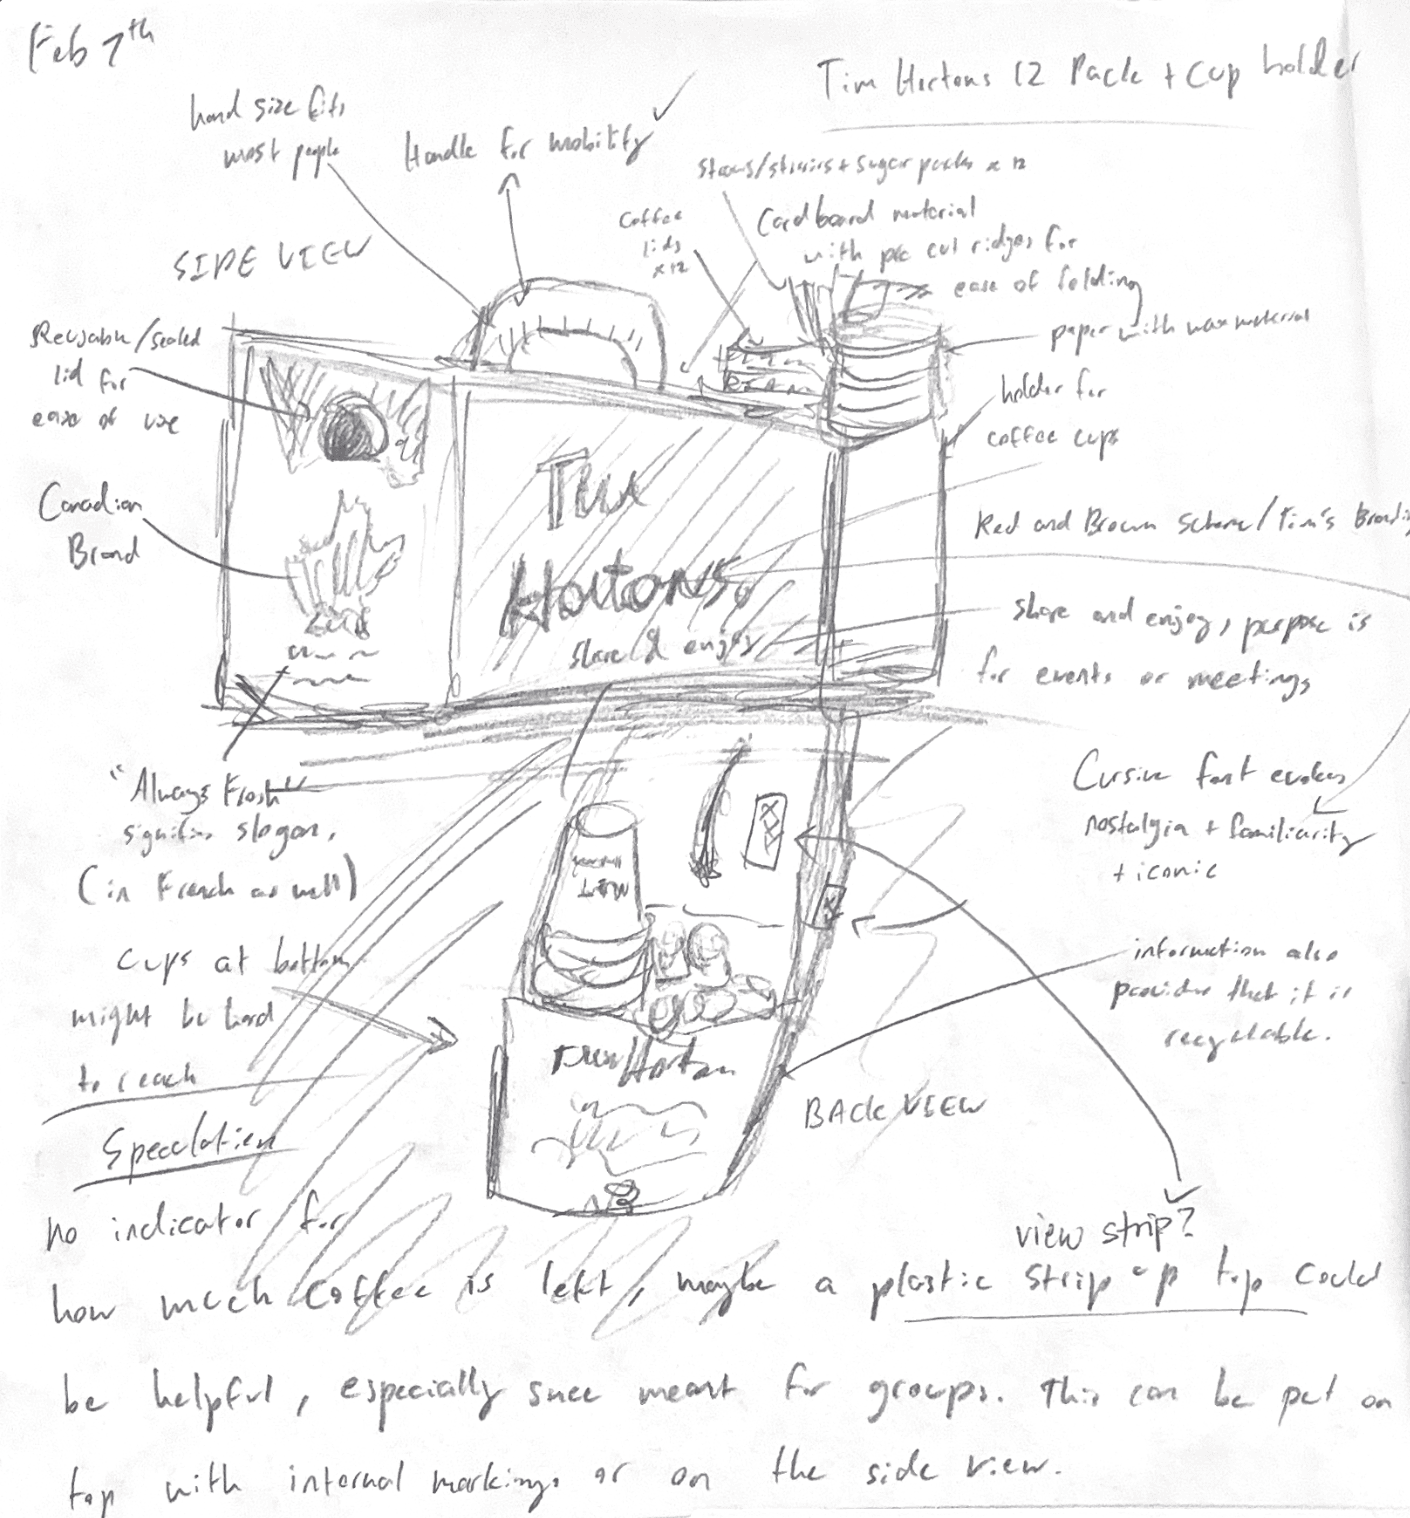 Feb 7th
Tim Hortons 12 Pack + Cup holder
hand size fits
most people
Handle for mobility
straws/stirrirs + sugar packs x 12
coffee
lids
x12
Cardboard material
with pre cut ridges for
ease of folding
SIDE VIEW
paper with wax material
Reusable/sealed
lid for
ease of use
holder for
coffee cups
Canadian
Brand
Tim
Hortons
share & enjoy
Red and Brown Scheme/Tim's
share and enjoy, purpose is
for events or meetings
"Always Fresh"
slogan,
(in French as well)
Cursive font evokes
nostalgia + familiarity
+ iconic
cups at bottom
might be hard
to reach
information also
provides that it is
recyclable.
Tim Horton
BACK VIEW
Speculation
view strip?
no indicator for
how much coffee is left, maybe a plastic strip up top could
be helpful, especially since meant for groups. This can be put on
top with internal markings or on the side view.